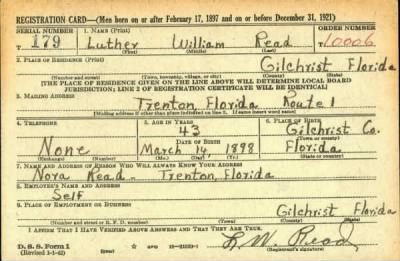 REGISTRATION CARD—(Men born on or after February 17, 1897 and on or before December 31, 1921)
SERIAL NUMBER 1. NAME (Print) ORDER NUMBER
T 179 Luther William Read 10006
(First) (Middle) (Last)
2. PLACE OF RESIDENCE (Print)
Gilchrist Florida
(Number and street) (Town, township, village, or city) (County) (State)
[THE PLACE OF RESIDENCE GIVEN ON THE LINE ABOVE WILL DETERMINE LOCAL BOARD
JURISDICTION; LINE 2 OF REGISTRATION CERTIFICATE WILL BE IDENTICAL]
3. MAILING ADDRESS
Trenton Florida Route 1
[Mailing address if other than place indicated on line 2. If same insert word same]
4. TELEPHONE 5. AGE IN YEARS 6. PLACE OF BIRTH
43 Gilchrist Co.
DATE OF BIRTH (Town or county)
None March 14 1898 Florida
(Exchange) (Number) (Mo.) (Day) (Yr.) (State or country)
7. NAME AND ADDRESS OF PERSON WHO WILL ALWAYS KNOW YOUR ADDRESS
Nora Read - Trenton, Florida
8. EMPLOYER'S NAME AND ADDRESS
Self
9. PLACE OF EMPLOYMENT OR BUSINESS
Gilchrist Florida
(Number and street or R. F. D. number) (Town) (County) (State)
I AFFIRM THAT I HAVE VERIFIED ABOVE ANSWERS AND THAT THEY ARE TRUE.
D. S. S. Form 1
(Revised 1-1-42) (over) L. W. Read
(Registrant's signature)